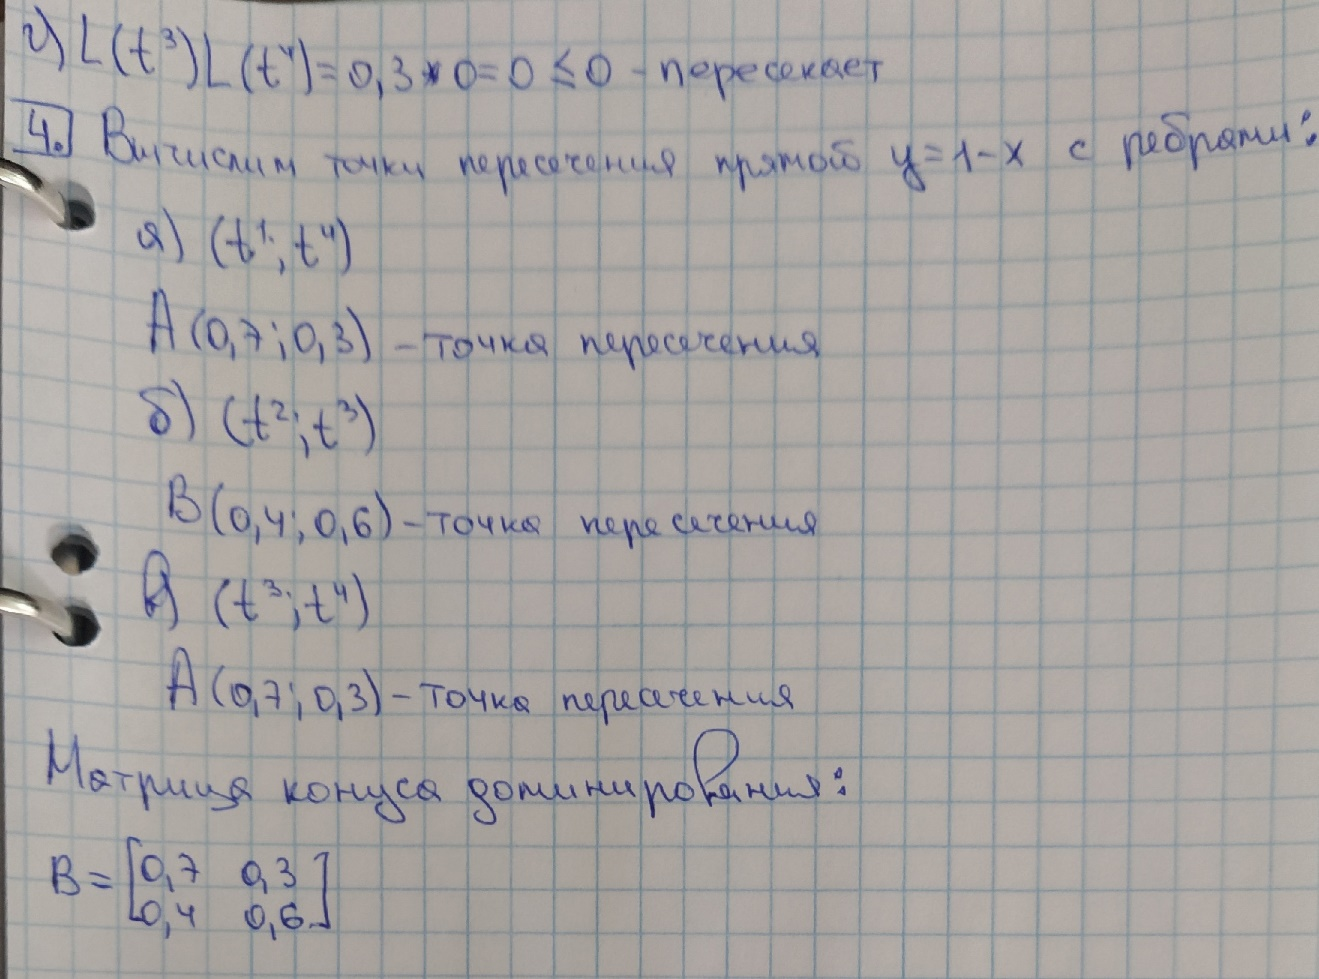 г) L(t³)L(t⁴)=0,3*0=0≤0 - пересекает
4. Вычислим точки пересечения прямой y=1-x с ребрами:
а) (t¹; t⁴)
A(0,7; 0,3) - точка пересечения
б) (t²; t³)
B(0,4; 0,6) - точка пересечения
в) (t³; t⁴)
A(0,7; 0,3) - точка пересечения
Матрица конуса доминирования:
B = [0,7 0,3
0,4 0,6]